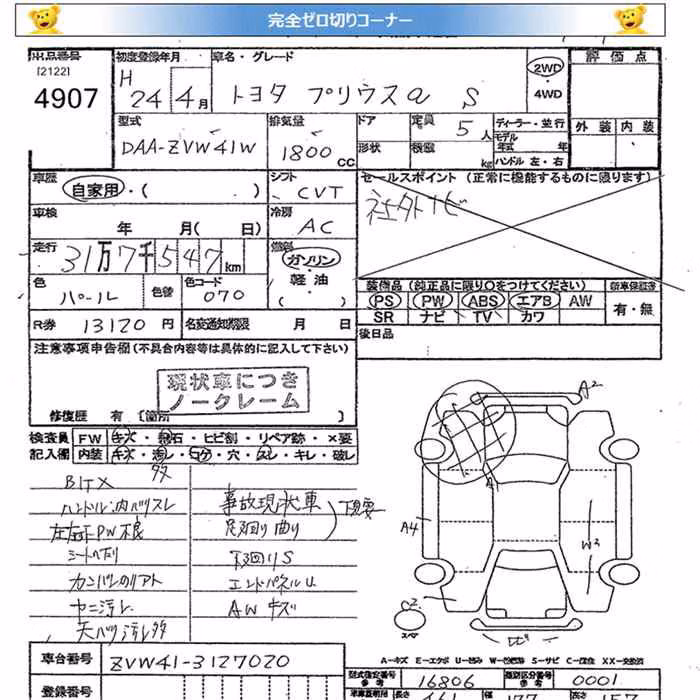 完全ゼロ切りコーナー
出品番号 初度登録年月 車名・グレード 評価点
[2122] H 2WD
4907 24 4月 トヨタ プリウスα S 4WD
型式 排気量 ドア 定員 5人 ディーラー・並行 外装 内装
モデル
年式 年
DAA-ZVW41W 1800cc 形状 積載 kg ハンドル 左・右
車歴 シフト セールスポイント (正常に機能するものに限ります)
自家用・( ) CVT
車検 冷房 社外ナビ
年 月( 日) AC
走行 燃料
31万7千547km ガソリン・
色 色替 色コード 軽油 装備品 (純正品に限り○をつけてください) 新車保証書
パール 070 ・( ) PS PW ABS エアB AW 有・無
SR ナビ TV カワ
R券 13120円 名変通知期限 月 日 後日品
注意事項申告欄 (不具合内容等は具体的に記入して下さい)
現状車につき
ノークレーム
修復歴 有 [箇所 ]
検査員 FW キズ・飛石・ヒビ割・リペア跡・×要
記入欄 内装 キズ・汚レ・コゲ・穴・スレ・キレ・破レ
多
ハンドル・内バリスレ 事故現状車
足回り曲り
下見要
シートヘタリ 下回りS
エンドパネルU
ヤニ汚レ AWキズ
天バリ汚レ多
A2
A
A4
W2
C2
スペア
車台番号 ZVW41-3127020
A-キズ E-エクボ U-凹み W-波 S-サビ C-腐蝕 XX-交換済
登録番号 型式指定番号 参考 16806 類別区分番号 参考 0001